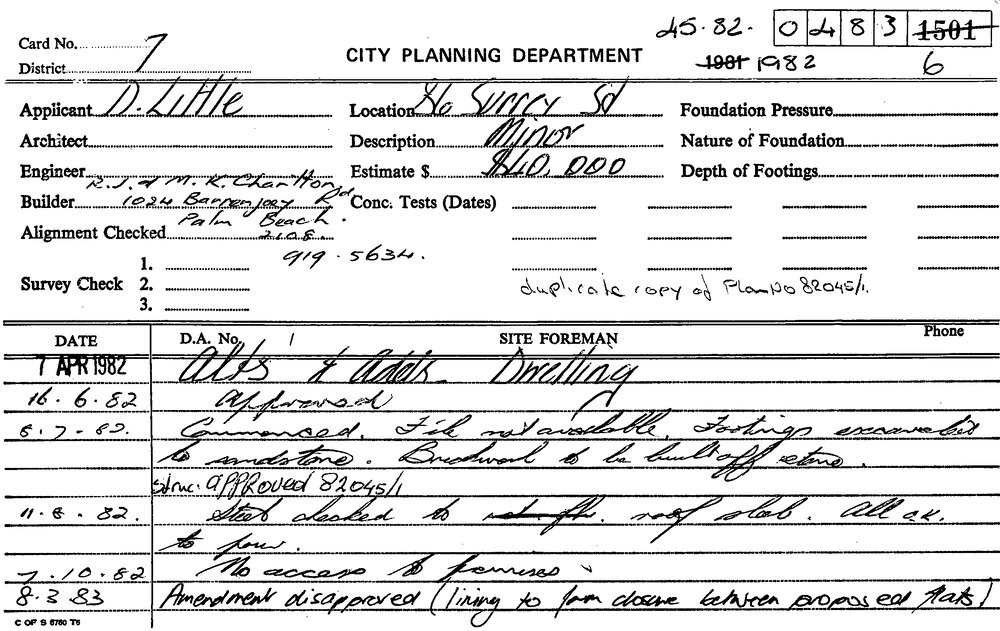 45.82. 0 4 8 3 1501
Card No. 7
CITY PLANNING DEPARTMENT
District
1981 1982 6
Applicant D. Little
Location 86 Surrey Sd
Foundation Pressure
Architect
Description Minor
Nature of Foundation
Engineer
Estimate $ $40,000
Depth of Footings
R.J. & M.K. Charlton
Builder 1024 Barrenjoey Rd
Conc. Tests (Dates)
Palm Beach.
Alignment Checked 2108.
919.5634.
1.
Survey Check 2.
duplicate copy of Plan No 82045/1.
3.
DATE D.A. No. SITE FOREMAN Phone
7 APR 1982 Alts & Adds Dwelling
16.6.82 Approved
8.7.82. Commenced. File not available. Footings excavated
to sandstone. Brickwork to be built off stone.
Struc. APPROVED 82045/1
11.8.82. Steel checked to roof slab. All o.k.
to pour.
7.10.82 No access to premises
8.3.83 Amendment disapproved (lining to form closure between proposed flats)
C OF S 6760 T6